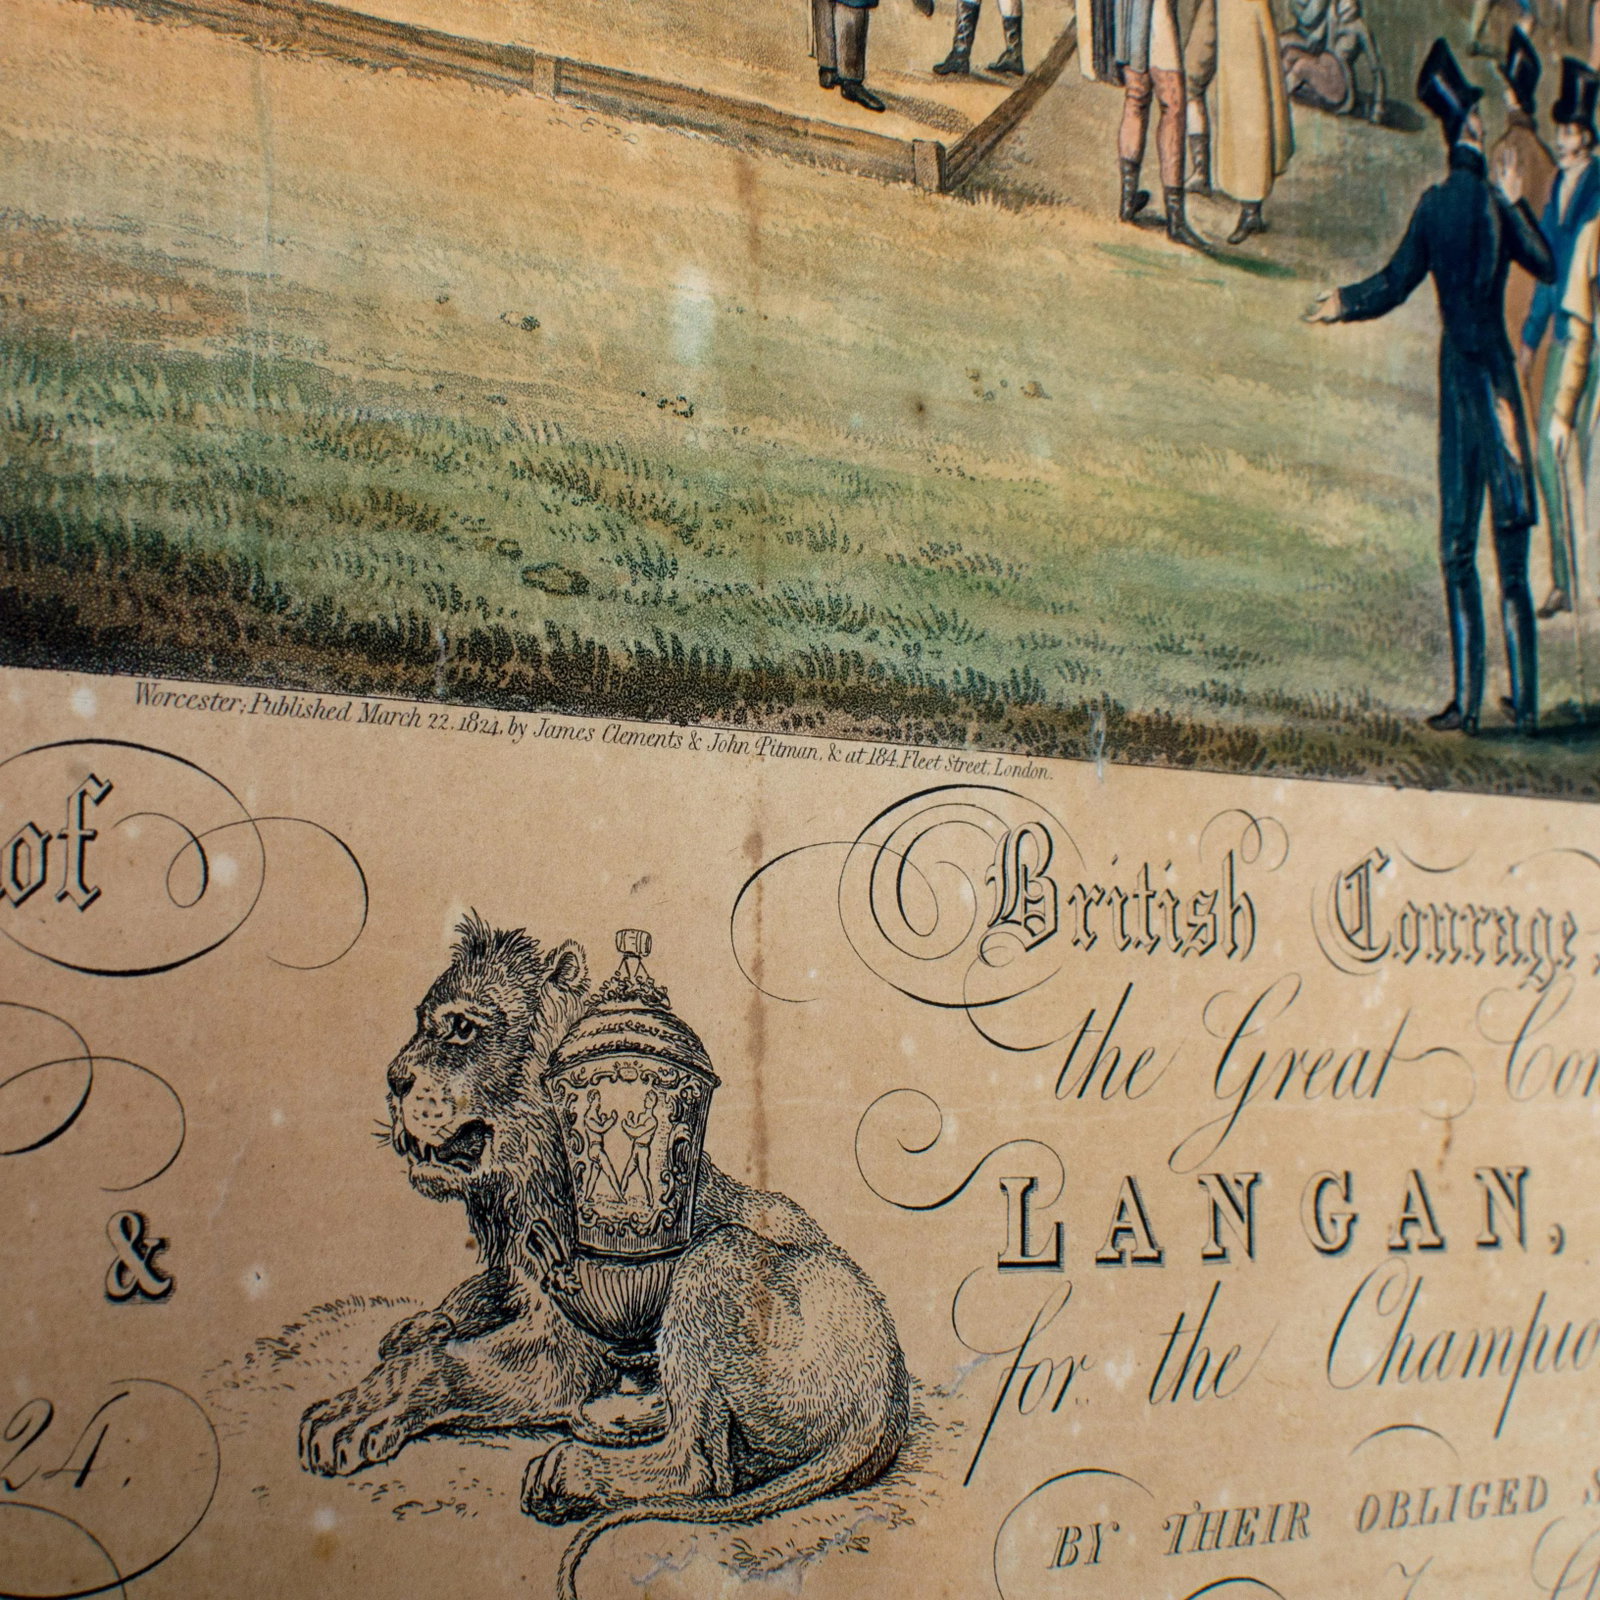 Worcester; Published March 22. 1824, by James Clements & John Pitman, & at 184, Fleet Street, London.
of British Courage,
the Great
& LANGAN,
for the
24.
BY THEIR OBLIGED